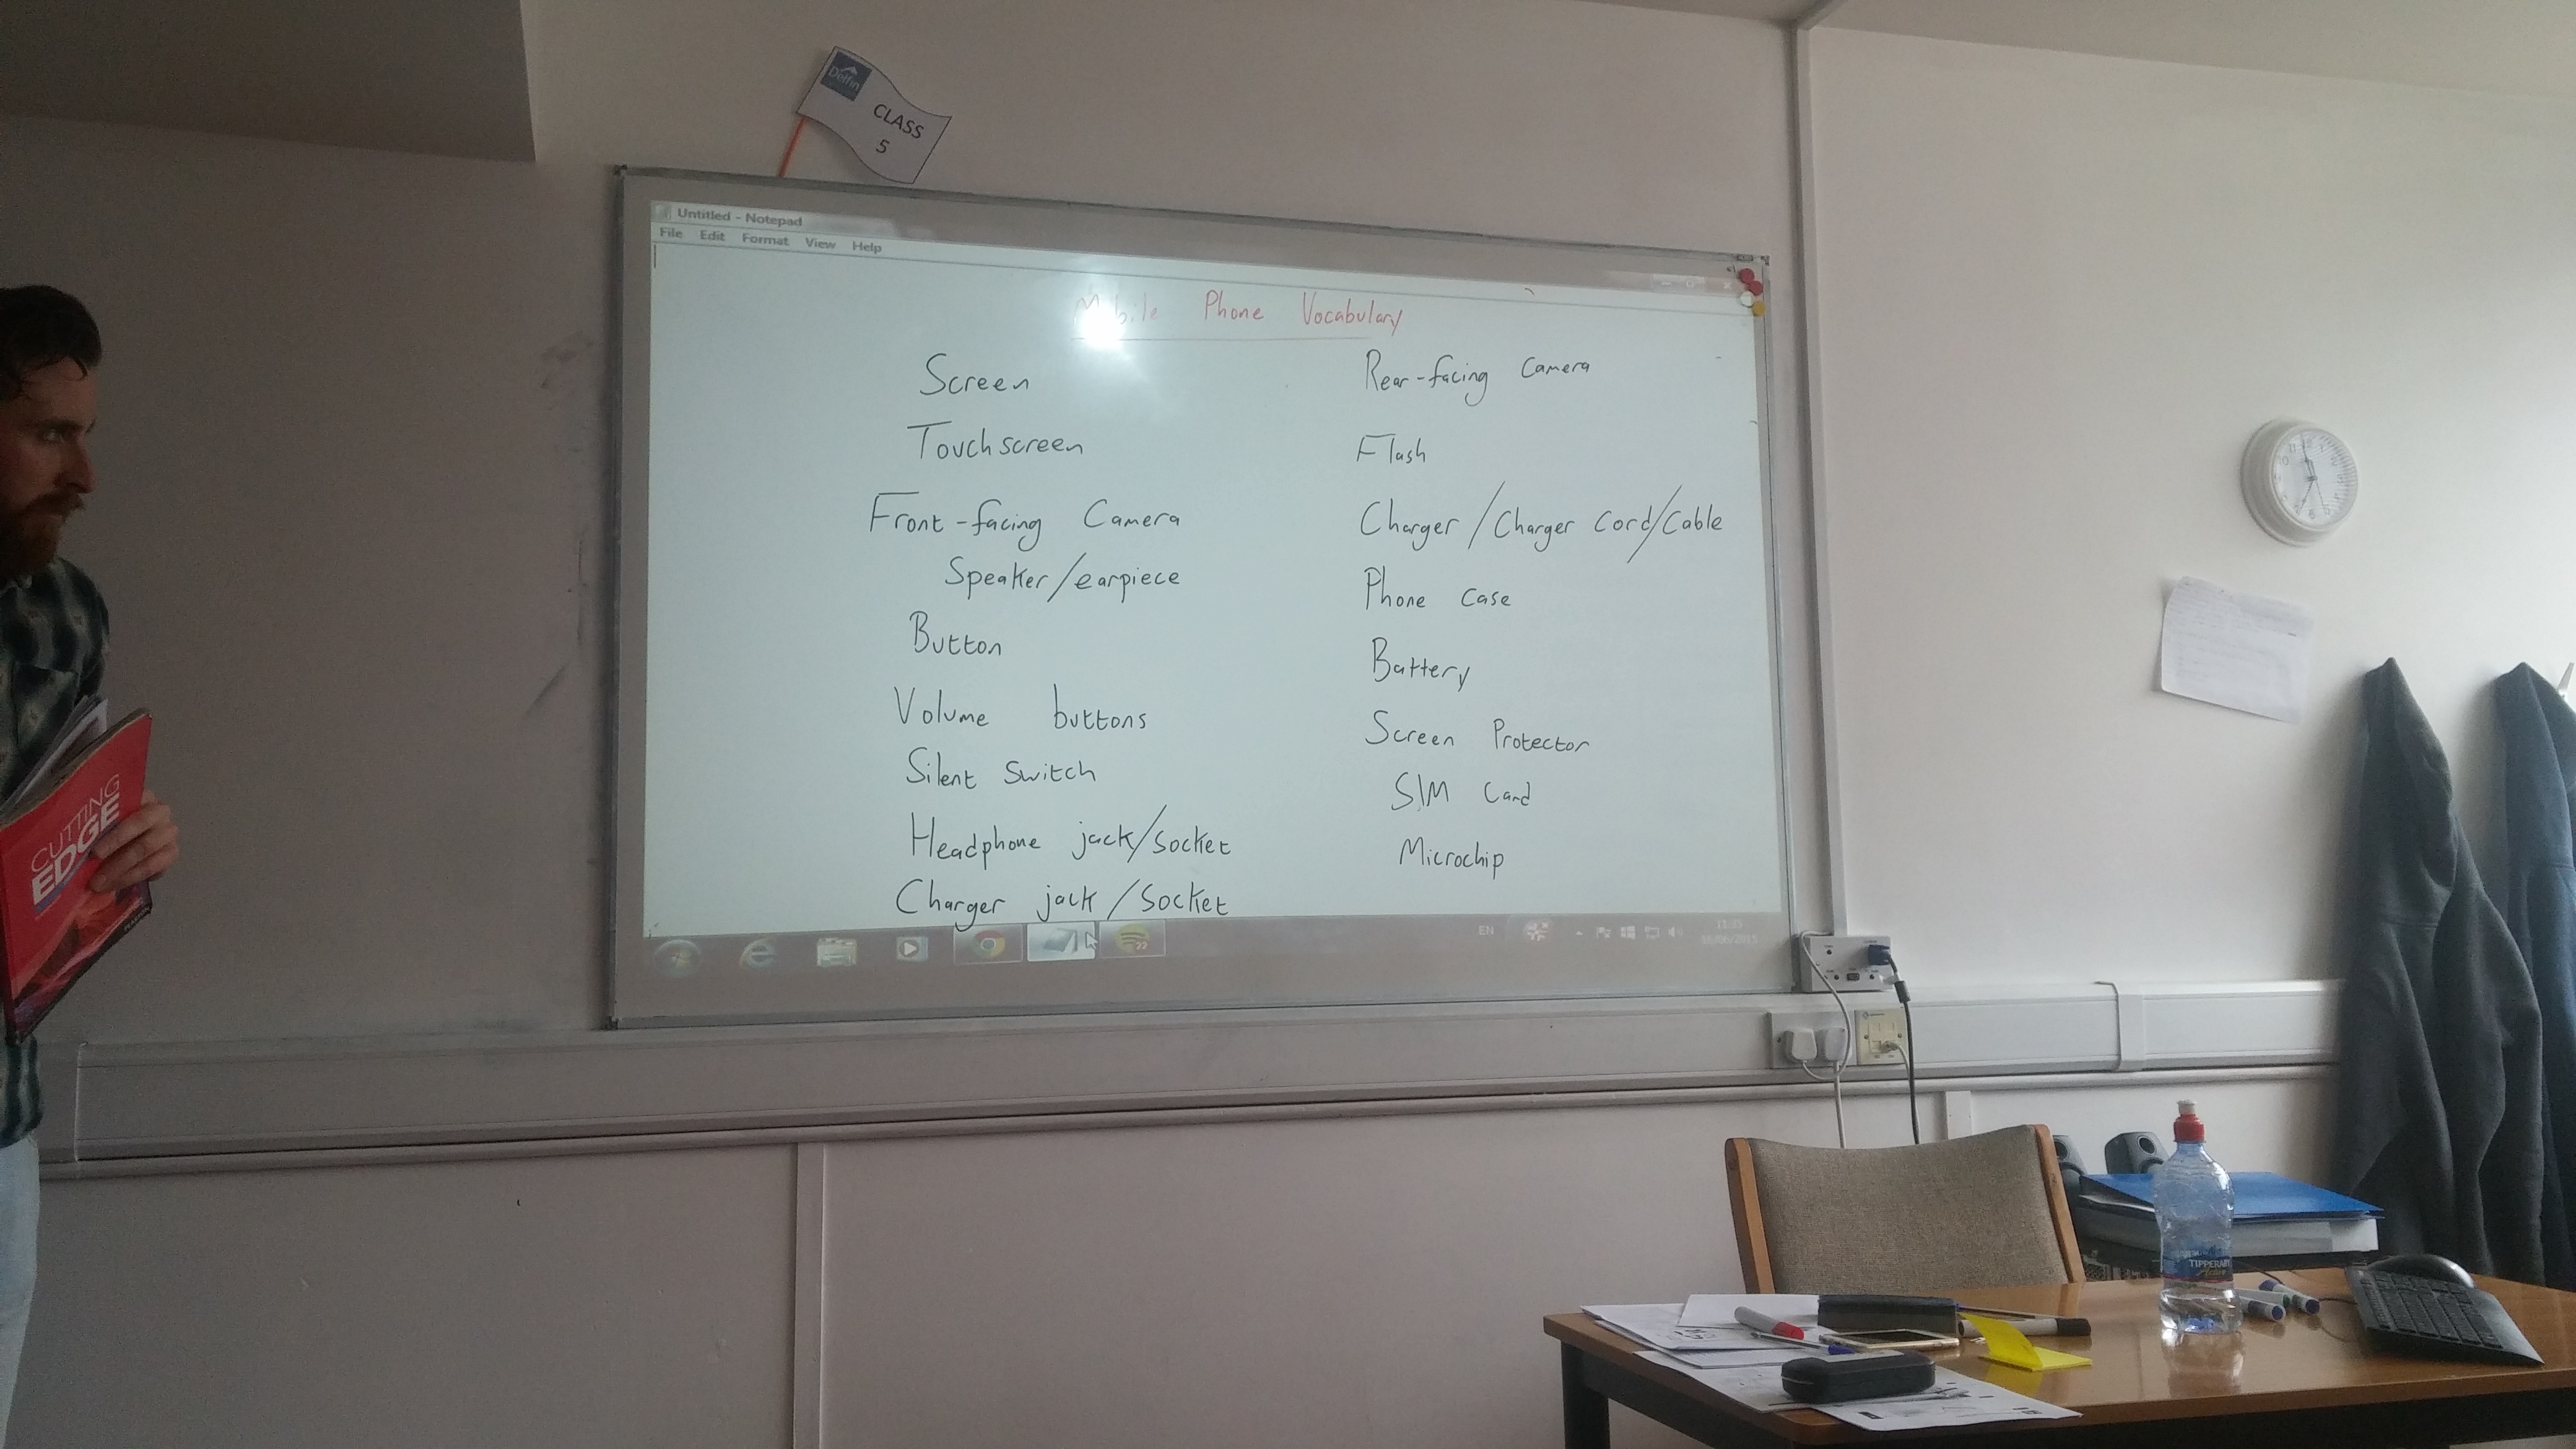 Delfin
CLASS
5
Untitled - Notepad
File Edit Format View Help
Mobile Phone Vocabulary
Screen
Touchscreen
Front-facing Camera
Speaker/earpiece
Button
Volume buttons
Silent Switch
Headphone jack/socket
Charger jack/socket
Rear-facing Camera
Flash
Charger/Charger Cord/Cable
Phone case
Battery
Screen Protector
SIM Card
Microchip
22
EN
11:35
CUTTING
EDGE
TIPPERARY